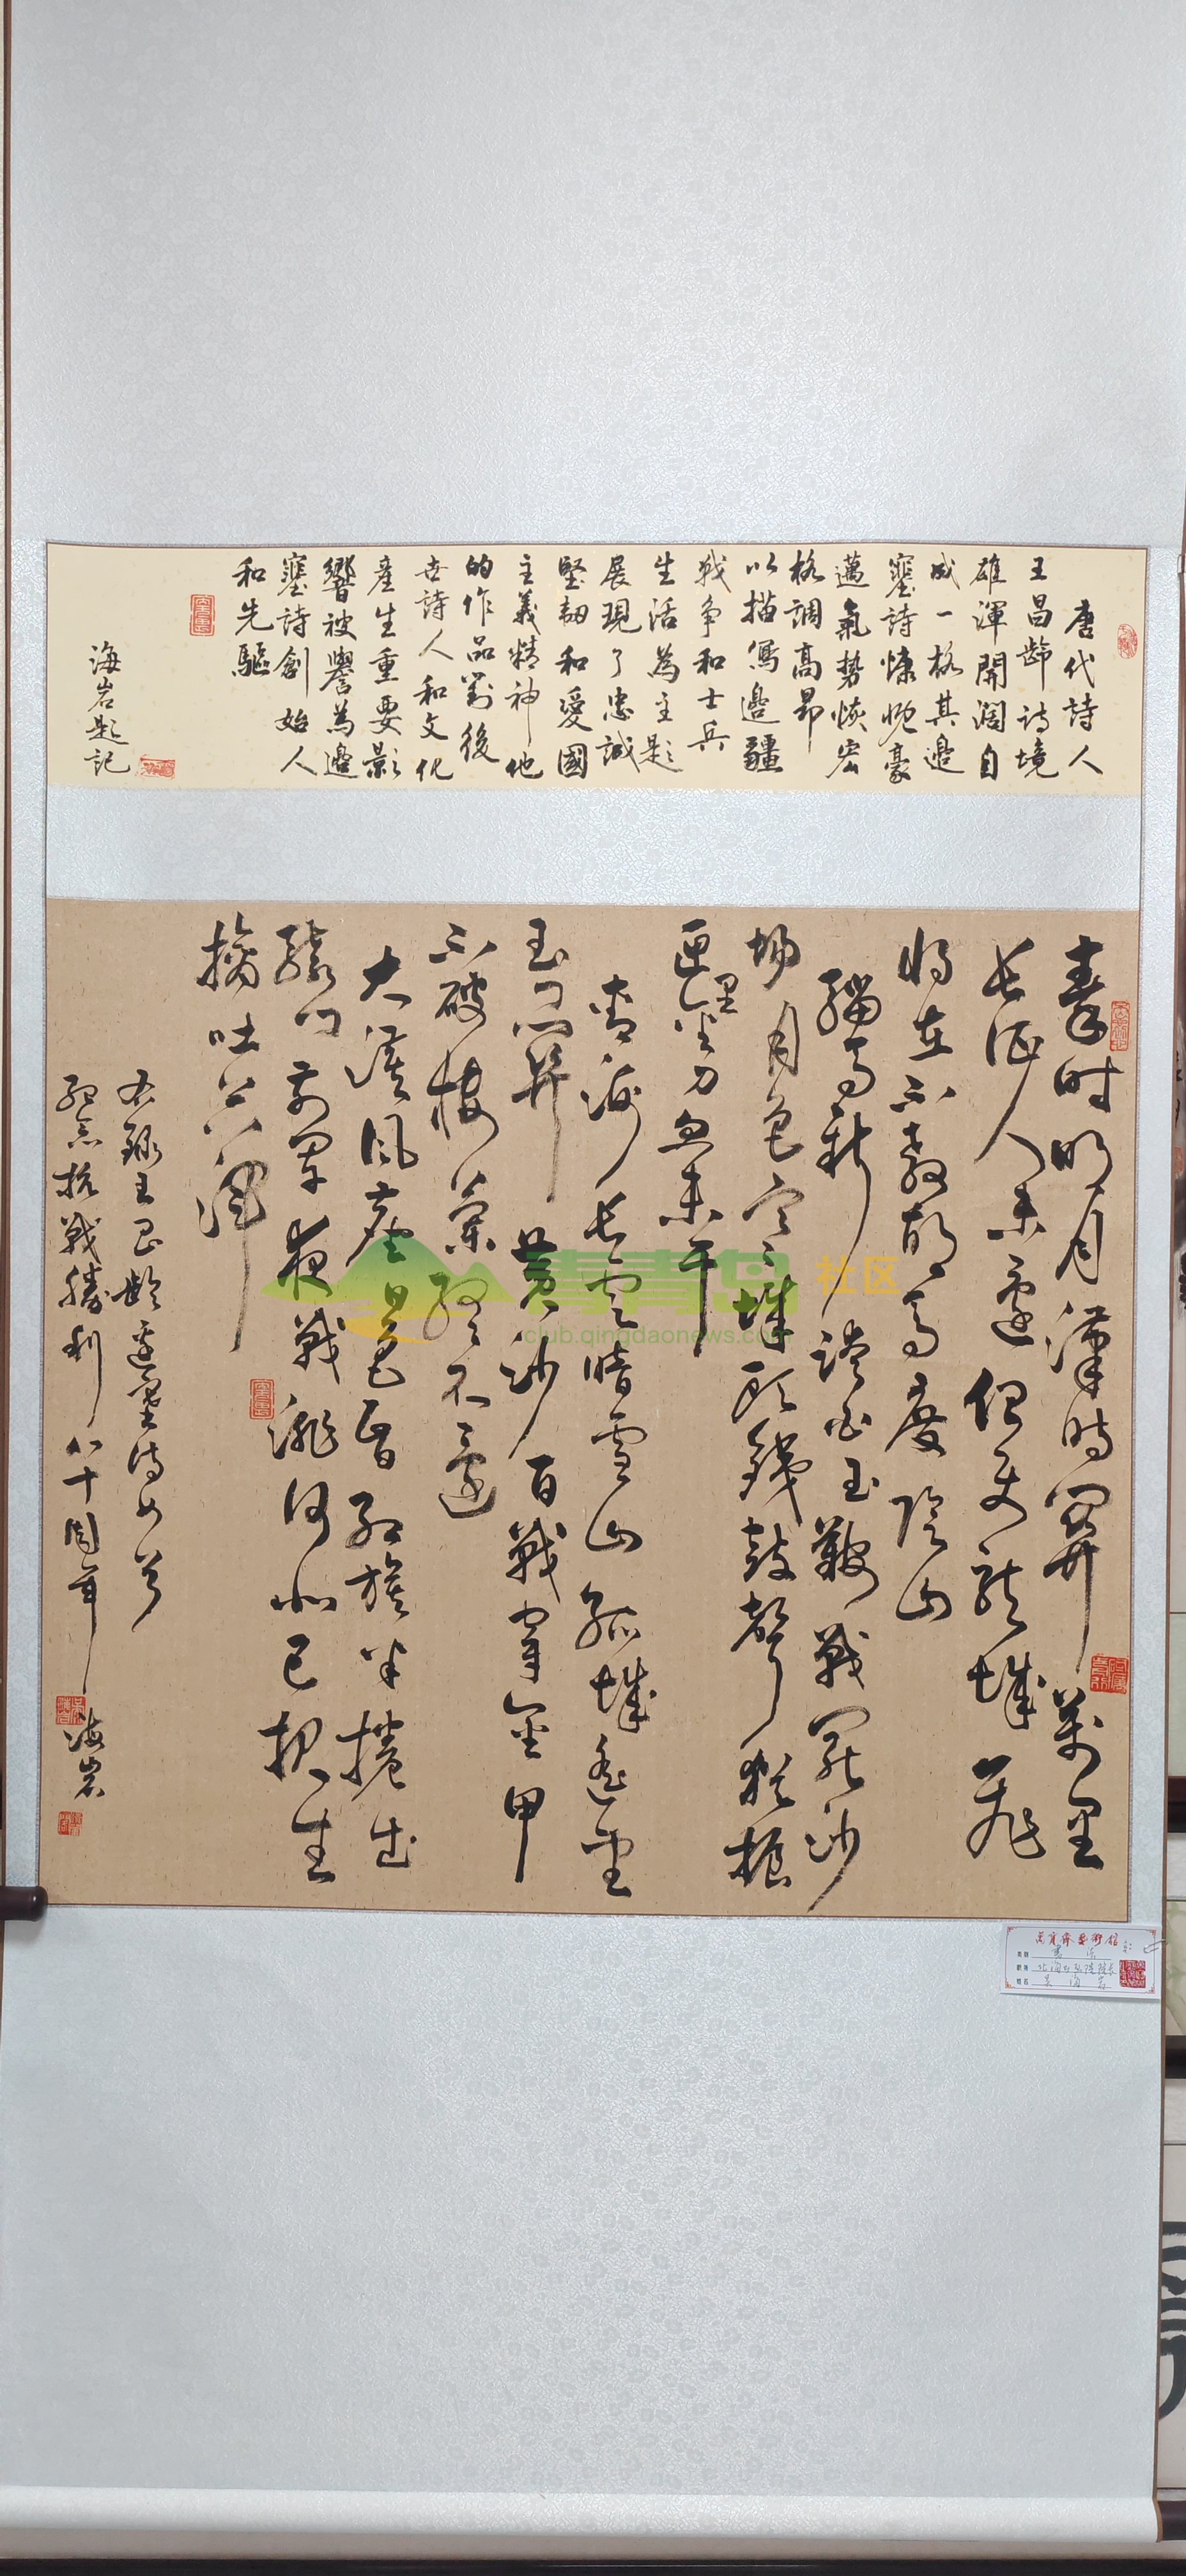 唐代詩人
王昌齡詩境
雄渾開闊自
成一格其邊
塞詩慷慨豪
邁氣勢恢宏
格調高昂
以描寫邊疆
戰争和士兵
生活為主題
展現了忠誠
堅韌和愛國
主義精神他
的作品對後
世詩人和文化
產生重要影
響被譽為邊
塞詩創始人
和先驅
海岩題記
秦時明月漢時関萬里
長征人未還但使龍城飛
將在不教胡馬度陰山
騮馬新跨白玉鞍戰罷沙
場月色寒城頭鐵鼓聲猶振
匣里金刀血未干
青海長雲暗雪山孤城遥望
玉门関黄沙百戰穿金甲
不破樓蘭終不還
大漠風塵日色昏红旗半捲出
轅门前軍夜戰洮河北已报生
擒吐谷渾
右録王昌齡邊塞詩四首
紀念抗戰勝利八十周年
海岩
青青岛社区
club.qingdaonews.com
書法
吴海岩